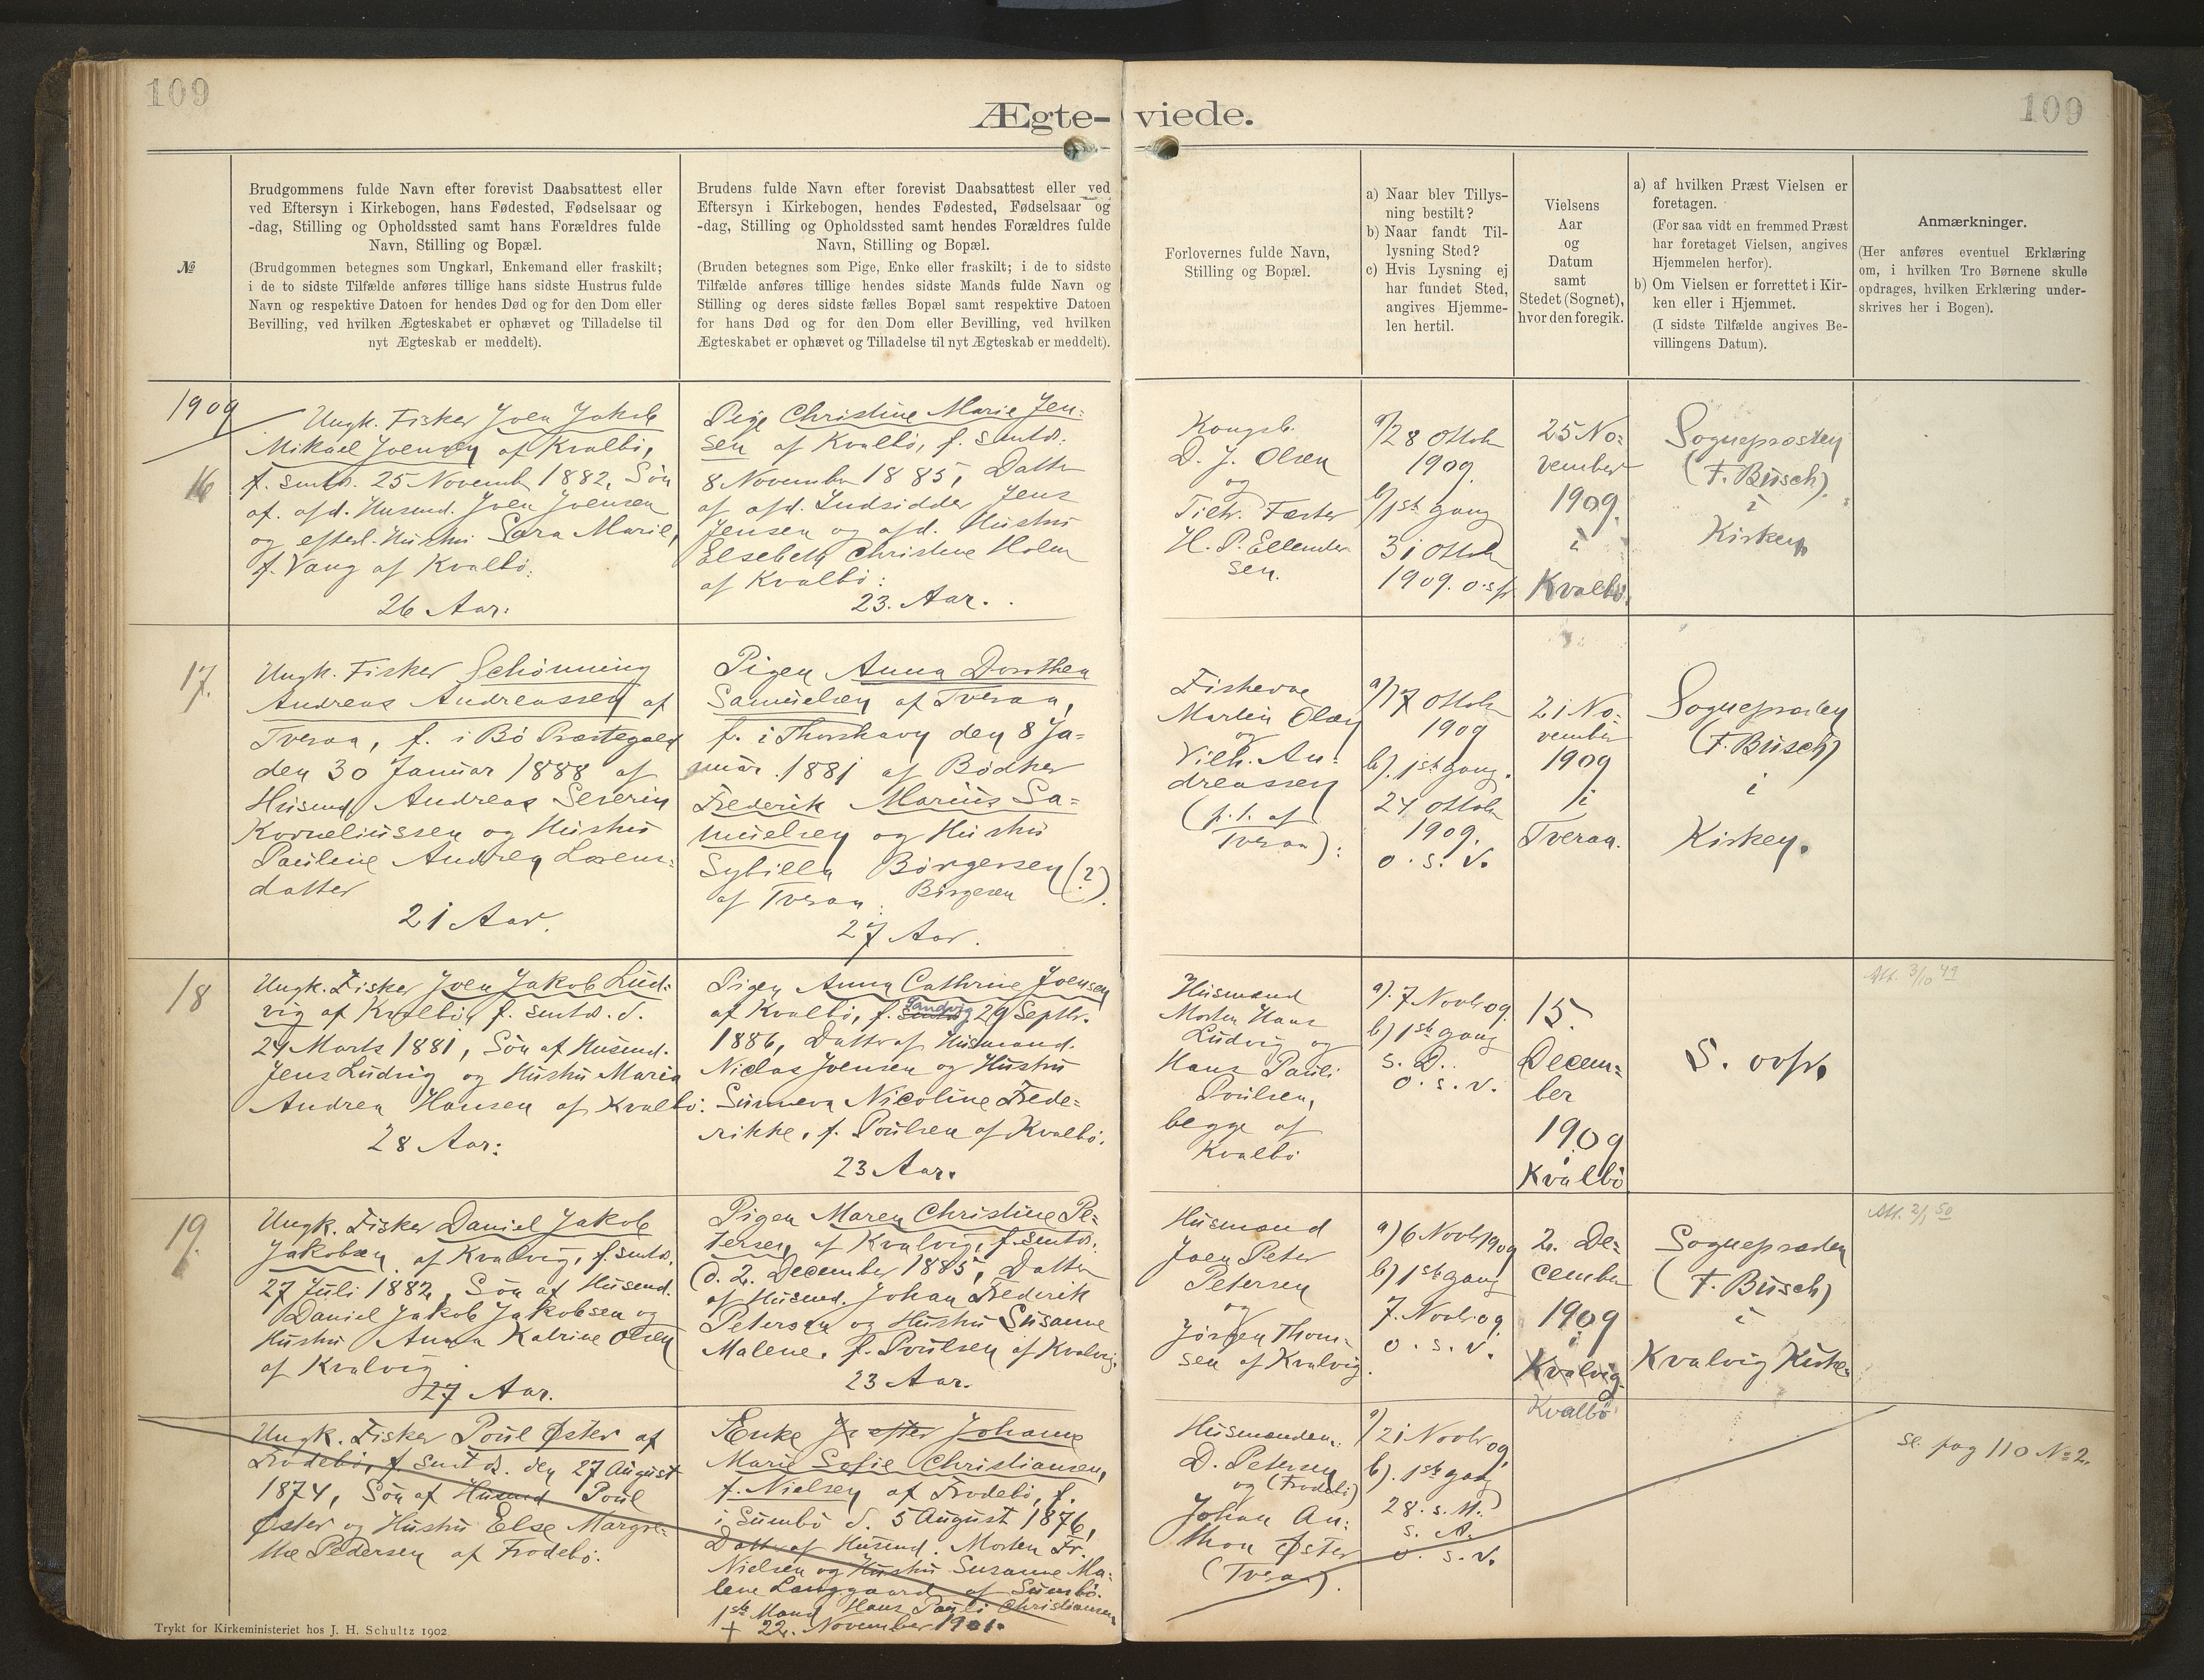 109
109
Ægte-viede.
№
Brudgommens fulde Navn efter forevist Daabsattest eller
ved Eftersyn i Kirkebogen, hans Fødested, Fødselsaar og
-dag, Stilling og Opholdssted samt hans Forældres fulde
Navn, Stilling og Bopæl.
(Brudgommen betegnes som Ungkarl, Enkemand eller fraskilt;
i de to sidste Tilfælde anføres tillige hans sidste Hustrus fulde
Navn og respektive Datoen for hendes Død og for den Dom eller
Bevilling, ved hvilken Ægteskabet er ophævet og Tilladelse til
nyt Ægteskab er meddelt).
Brudens fulde Navn efter forevist Daabsattest eller ved
Eftersyn i Kirkebogen, hendes Fødested, Fødselsaar og
-dag, Stilling og Opholdssted samt hendes Forældres fulde
Navn, Stilling og Bopæl.
(Bruden betegnes som Pige, Enke eller fraskilt; i de to sidste
Tilfælde anføres tillige hendes sidste Mands fulde Navn og
Stilling og deres sidste fælles Bopæl samt respektive Datoen
for hans Død og for den Dom eller Bevilling, ved hvilken
Ægteskabet er ophævet og Tilladelse til nyt Ægteskab er meddelt).
Forlovernes fulde Navn,
Stilling og Bopæl.
a) Naar blev Tillys-
ning bestilt?
b) Naar fandt Til-
lysning Sted?
c) Hvis Lysning ej
har fundet Sted,
angives Hjemme-
len hertil.
Vielsens
Aar
og
Datum
samt
Stedet (Sognet),
hvor den foregik.
a) af hvilken Præst Vielsen er
foretagen.
(For saa vidt en fremmed Præst
har foretaget Vielsen, angives
Hjemmelen herfor).
b) Om Vielsen er forrettet i Kir-
ken eller i Hjemmet.
(I sidste Tilfælde angives Be-
villingens Datum).
Anmærkninger.
(Her anføres eventuel Erklæring
om, i hvilken Tro Børnene skulle
opdrages, hvilken Erklæring under-
skrives her i Bogen).
1909
16
Ungk. Fisker Joen Jakob
Mikael Joensen af Kvalbø,
f. smtds. 25 Novemb 1882, Søn
af afd. Husmd. Joen Joensen
og efterl. Hustru Sara Marie,
f. Vang af Kvalbø.
26 Aar.
Pige Christine Marie Jen-
sen af Kvalbø, f. smtds.
8 November 1885, Datter
af afd. Indsidder Jens
Jensen og afd. Hustru
Elsebeth Christine Holm
af Kvalbø.
23. Aar.
Kongsb.
D. J. Olsen
og
Tilhr. Fæster
H. P. Ellender
sen.
a/28 Oktob
1909
b/1ste Gang
31 Oktob
1909. o.s.fr.
25 No-
vember
1909.
i
Kvalbø.
Sognepræsten
(F. Busch)
i
Kirken.
17.
Ungk. Fisker Schønning
Andreas Andreassen af
Tveraa, f. i Bø Præstegæld
den 30 Januar 1888 af
Husmd Andreas Severin
Korneliussen og Hustru
Pauline Andrea Lorens-
datter
21 Aar.
Pigen Anna Dorothea
Samuelsen af Tveraa,
f. i Thorshavn den 8 Ja-
nuar. 1881 af Bødker
Frederik Marius Sa-
muelsen og Hustru
Sybilla Börgersen (?)
af Tveraa. Börgesen
27 Aar.
Fiskerne
Martin Olsen
og
Vilh. An-
dreassen
(p. t. af
Tveraa).
a/17 Oktob
1909
b). 1ste Gang.
24 Oktob
1909.
o. s. v.
21 No-
vember
1909
i
Tveraa.
Sognepræsten
(F. Busch)
i
Kirken.
18
Ungk. Fisker Joen Jakob Lud-
vig af Kvalbø, f. smtds. d.
24 Marts 1881, Søn af Husmd.
Jens Ludvig og Hustru Maria
Andrea Hansen af Kvalbø.
28 Aar.
Pigen Anna Cathrine Joensen
af Kvalbø, f. smtds Sandvig 29 Septbr.
1886, Datter af Husmand.
Niclas Joensen og Hustru
Sunneva Nicoline Frede-
rikke, f. Poulsen af Kvalbø.
23 Aar.
Husmænd
Morten Hans
Ludvig og
Hans Pauli
Poulsen,
begge af
Kvalbø
a). 7 Novbr 09
b) 1ste Gang
s. D.
o. s. v.
15.
Decem-
ber
1909
i
Kvalbø
S. ovfr.
Att. 3/10 49
19.
Ungk. Fisker Daniel Jakob
Jakobsen af Kvalvig, f. smtds.
27 Juli 1882, Søn af Husmd.
Daniel Jakob Jakobsen og
Hustru Anna Katrine Olsen
af Kvalvig.
27 Aar.
Pigen Maren Christine Pe-
tersen, af Kvalvig, f. smtds.
d. 2. December 1885, Datter
af Husmd. Johan Frederik
Petersen og Hustru Susanne
Malene, f. Poulsen af Kvalvig.
23 Aar.
Husmænd
Joen Peter
Petersen
og
Jörgen Thom-
sen af Kvalvig.
a) 6 Novbr 1909
b) 1ste Gang
7. Novbr 09
o. s. v.
2. De-
cember
1909
i
Kvalvig
Kvalbø
Sognepræsten
(F. Busch)
i
Kvalvig Kirke.
Att. 2/1 50
Ungk. Fisker Poul Øster af
Frodebø, f. smtds. den 27 August
1874, Søn af Husmd Poul
Øster og Hustru Else Margre-
the Pedersen af Frodebø.
Enke efter Johanne
Marie Sofie Christiansen,
f. Nielsen af Frodebø, f.
i Sumbø d. 5 August 1876,
Datter af Husmd. Morten Fr.
Nielsen og Hustru Susanne Ma-
lene Langgaard af Sumbø.
1ste Mand Hans Pauli Christiansen
+ 22. November 1901.
Husmænden.
D. Petersen
og (Frodebø)
Johan An-
thon Øster
(Tveraa).
a/21 Novbr 09
b). 1ste Gang
28. s. M.
s. A.
o. s. v.
se. pag 110 № 2.
Trykt for Kirkeministeriet hos J. H. Schultz 1902